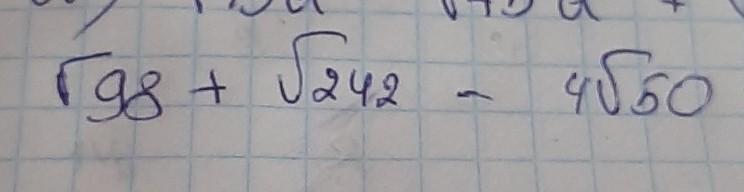 √98 + √242 - 4√50